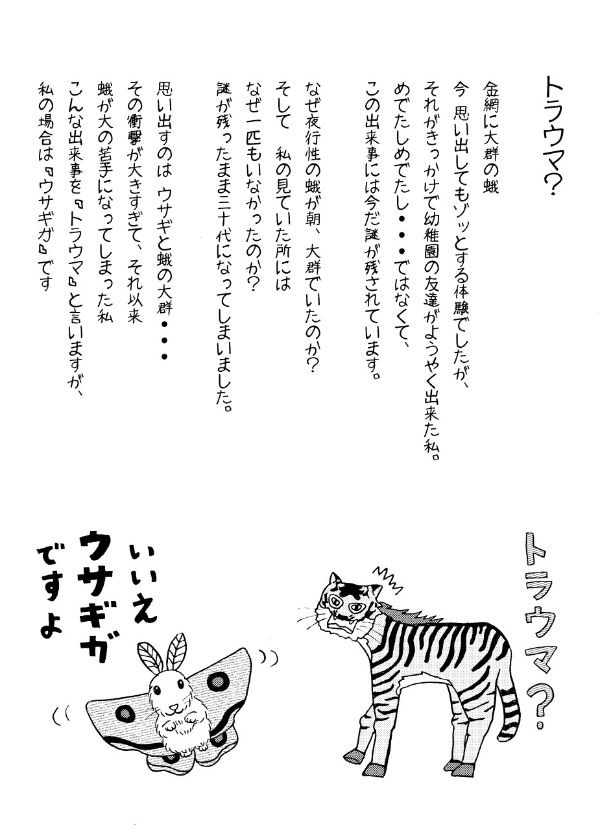 トラウマ？
金網に大群の蛾
今 思い出してもゾッとする体験でしたが、
それがきっかけで幼稚園の友達がようやく出来た私。
めでたしめでたし・・・ではなくて、
この出来事には今だ謎が残されています。
なぜ夜行性の蛾が朝、大群でいたのか？
そして 私の見ていた所には
なぜ一匹もいなかったのか？
謎が残ったまま三十代になってしまいました。
思い出すのは ウサギと蛾の大群・・・
その衝撃が大きすぎて、それ以来
蛾が大の苦手になってしまった私
こんな出来事を『トラウマ』と言いますが、
私の場合は『ウサギガ』です
トラウマ？
いいえ
ウサギガ
ですよ